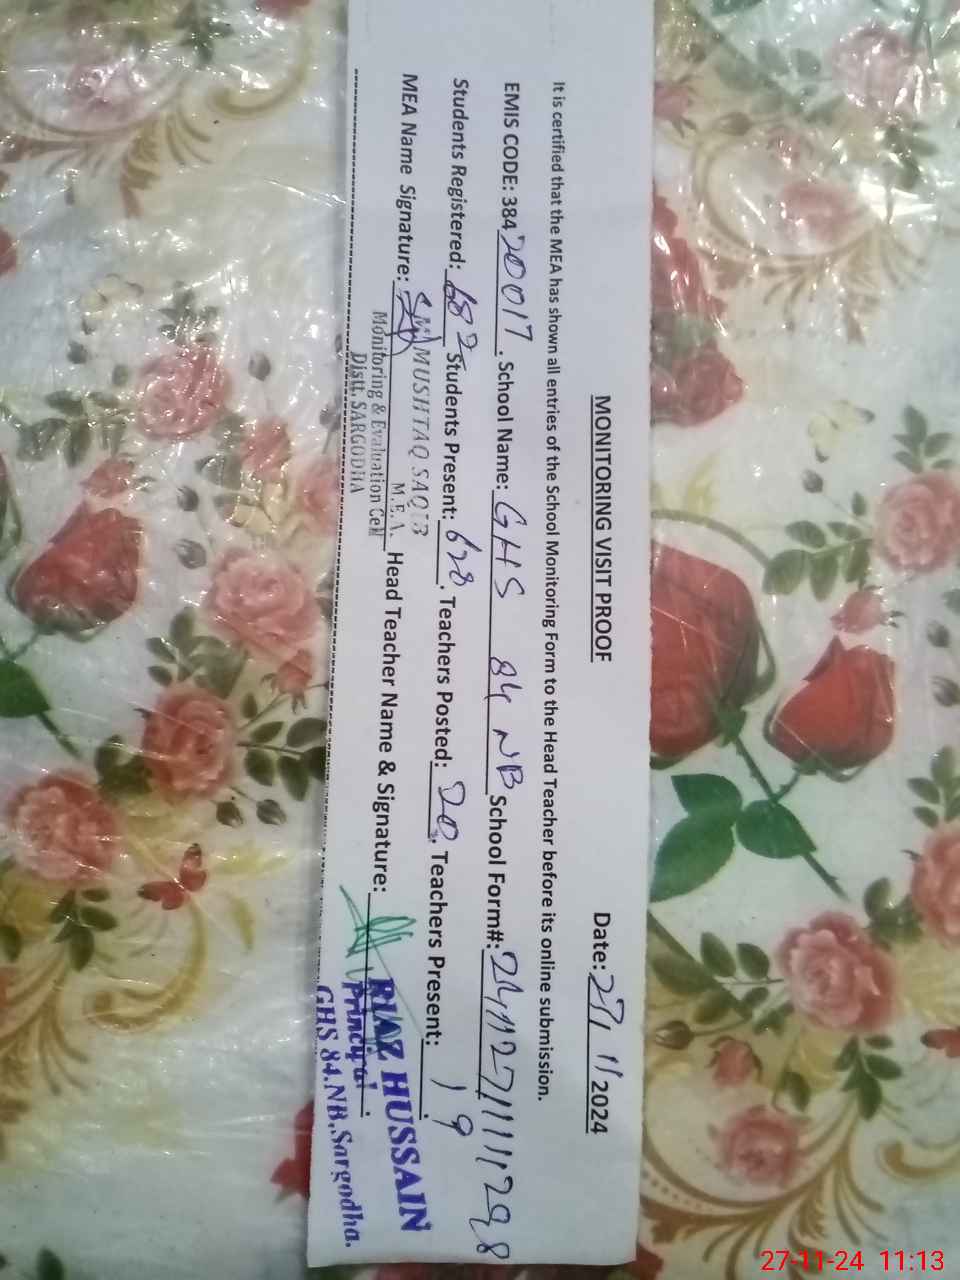 MONITORING VISIT PROOF Date: 27/11/2024
It is certified that the MEA has shown all entries of the School Monitoring Form to the Head Teacher before its online submission.
EMIS CODE: 38420017. School Name: GHS 84 NB School Form#:
Students Registered: 682 Students Present: 628. Teachers Posted: 20. Teachers Present: 19
MEA Name Signature: MUSHTAQ SAQIB Head Teacher Name & Signature: RIAZ HUSSAIN
M.E.A. Principal
Monitoring & Evaluation Cell GHS 84.NB,Sargodha.
Distt. SARGODHA
27-11-24 11:13